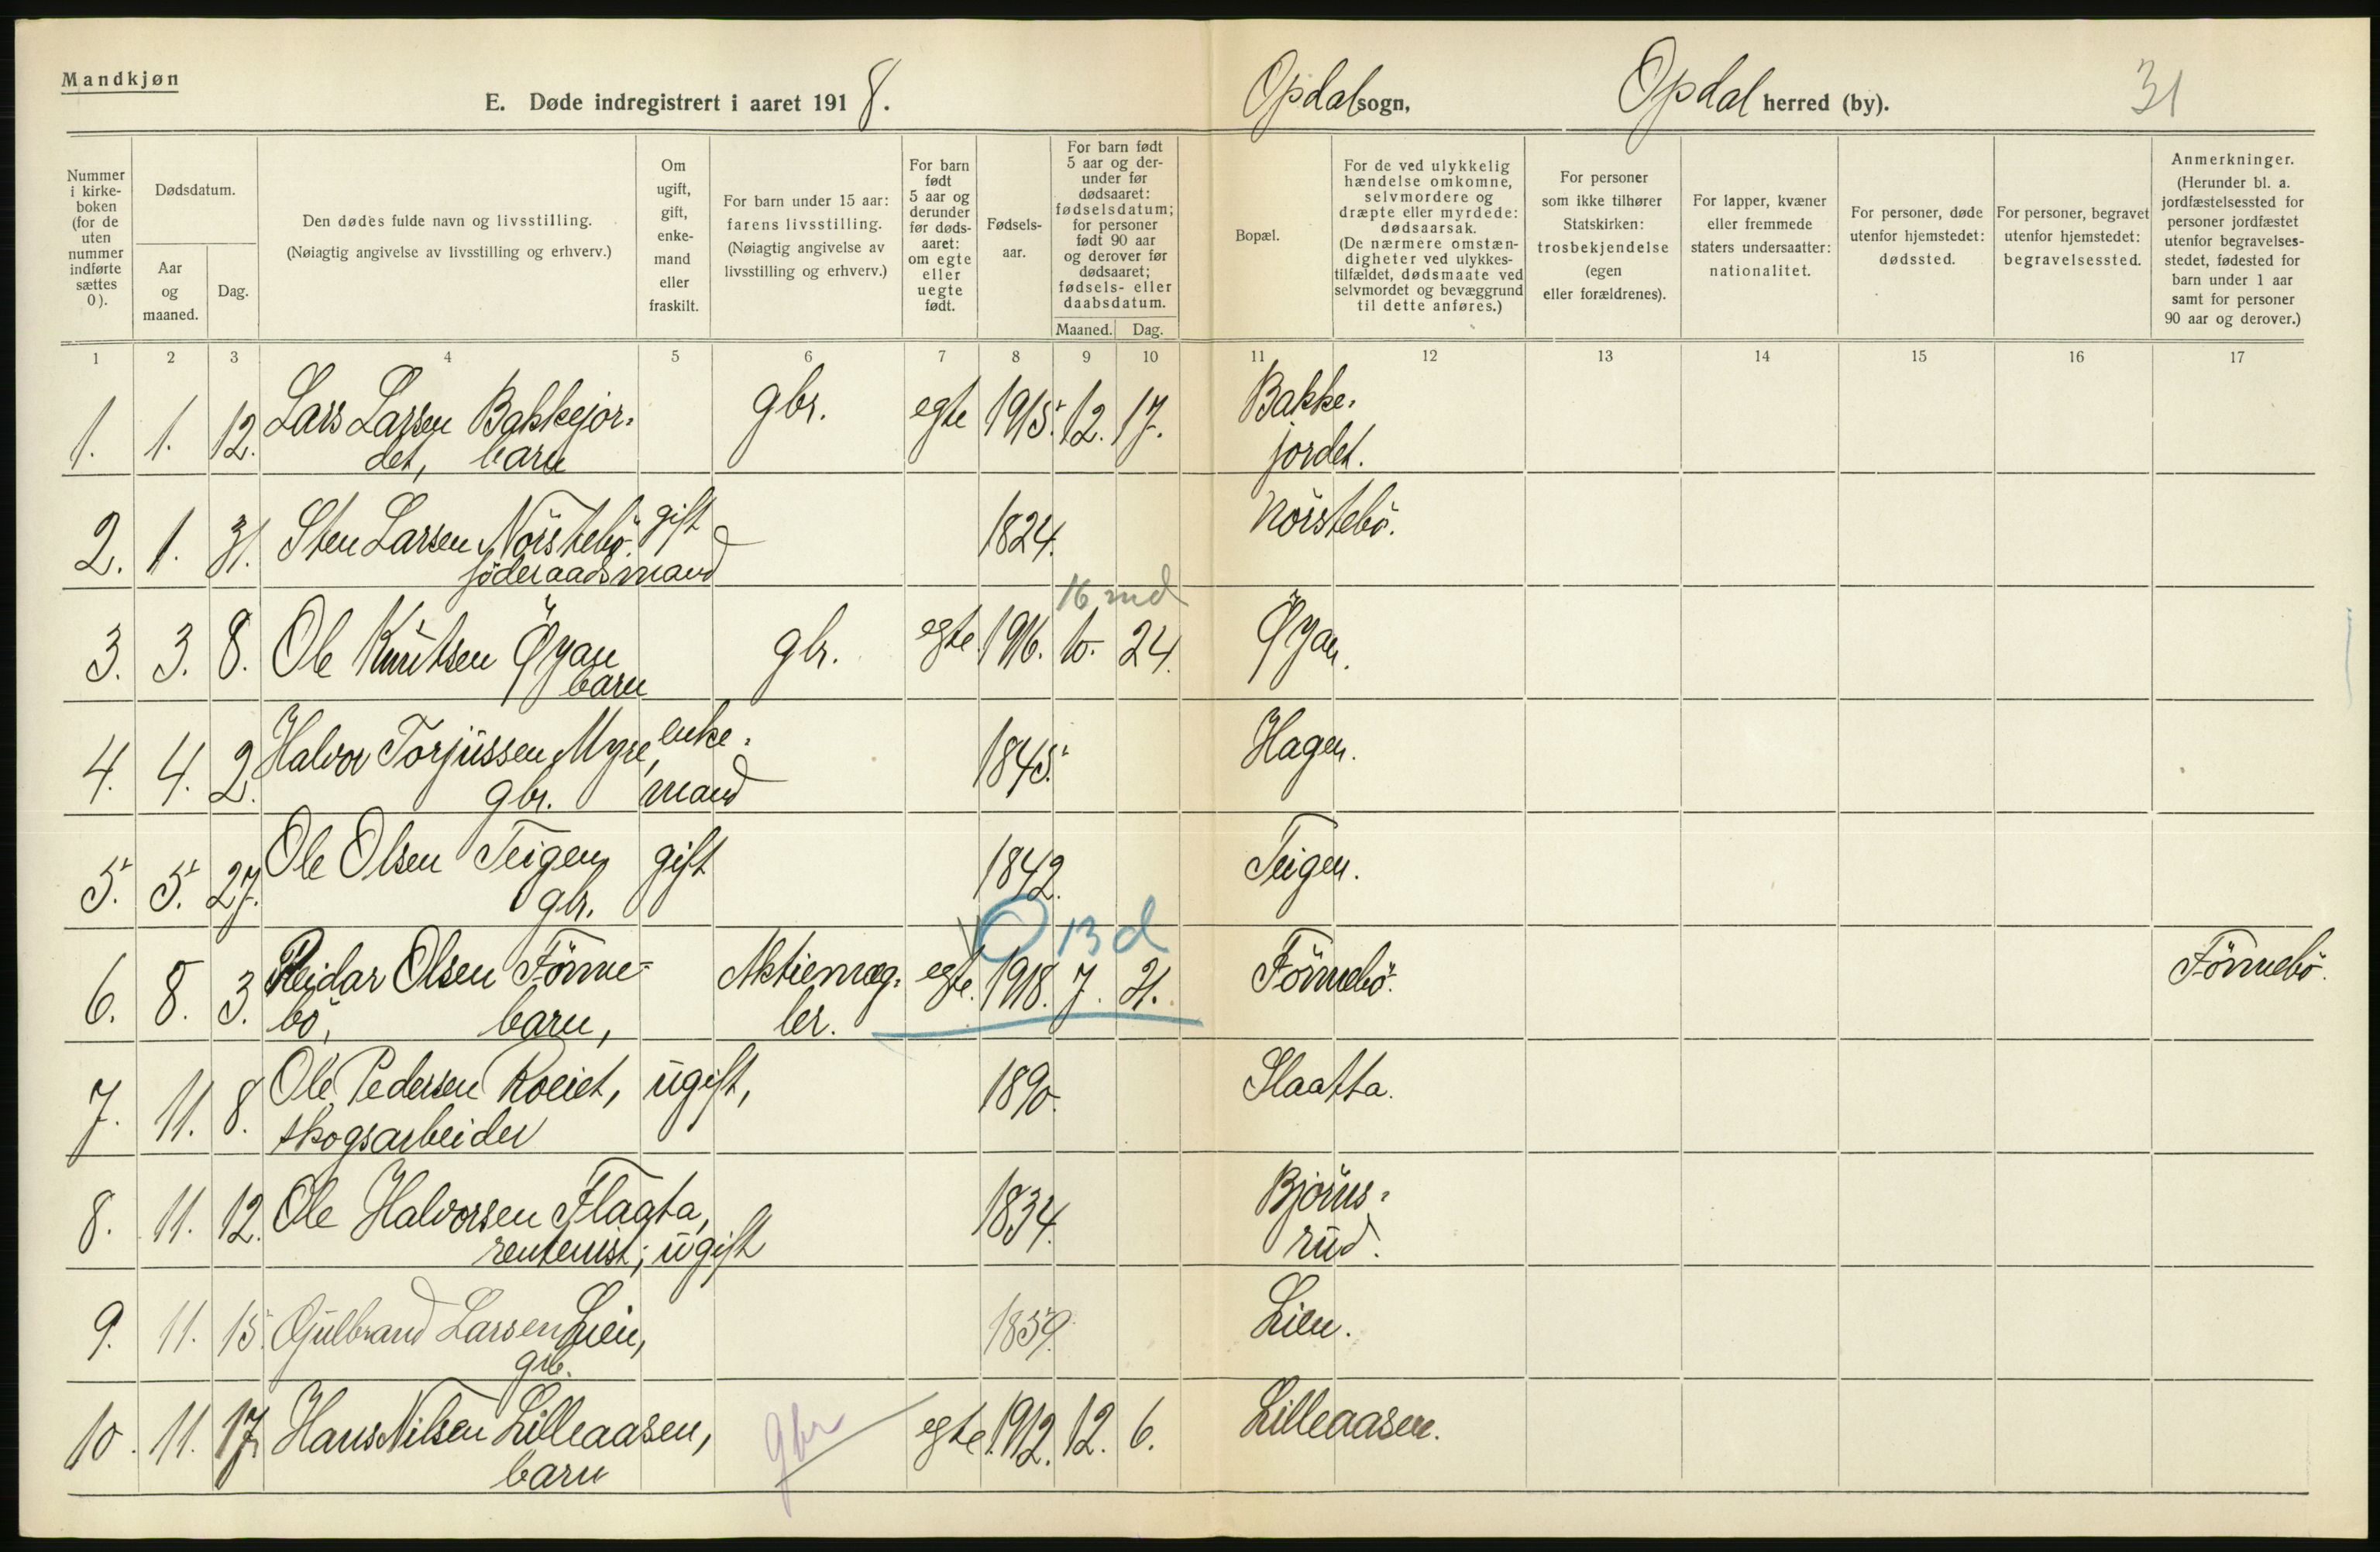 Mandkjøn
E. Døde indregistrert i aaret 1918.
Opdal sogn,
Opdal herred (by).
31
Nummer i kirke-boken (for de uten nummer indførte sættes 0).
Dødsdatum.
Aar og maaned.
Dag.
Den dødes fulde navn og livsstilling.
(Nøiagtig angivelse av livsstilling og erhverv.)
Om ugift, gift, enke-mand eller fraskilt.
For barn under 15 aar: farens livsstilling. (Nøiagtig angivelse av livsstilling og erhverv.)
For barn født 5 aar og derunder før døds-aaret: om egte eller uegte født.
Fødsels-aar.
For barn født 5 aar og der-under før dødsaaret: fødselsdatum; for personer født 90 aar og derover før dødsaaret; fødsels- eller daabsdatum.
Maaned.
Dag.
Bopæl.
For de ved ulykkelig hændelse omkomne, selvmordere og dræpte eller myrdede: dødsaarsak. (De nærmere omstæn-digheter ved ulykkes-tilfældet, dødsmaate ved selvmordet og bevæggrund til dette anføres.)
For personer som ikke tilhører Statskirken: trosbekjendelse (egen eller forældrenes).
For lapper, kvæner eller fremmede staters undersaatter: nationalitet.
For personer, døde utenfor hjemstedet: dødssted.
For personer, begravet utenfor hjemstedet: begravelsessted.
Anmerkninger. (Herunder bl. a. jordfæstelsessted for personer jordfæstet utenfor begravelses-stedet, fødested for barn under 1 aar samt for personer 90 aar og derover.)
1 2 3 4 5 6 7 8 9 10 11 12 13 14 15 16 17
1. 1. 12. Lars Larsen Bakkejor- gbr. egte 1915. 12. 17. Bakke-
det, barn jordet.
2. 1. 31. Sten Larsen Nörstebö. gift 1824. Nörstebö.
föderaadsmand
16 md
3. 3. 8. Ole Knutsen Öyan gbr. egte 1916. 10. 24. Öyan.
barn
4. 4. 2. Halvor Torjussen Myre, enke- 1845. Hagen.
gbr. mand
5. 5. 27. Ole Olsen Teigen gift 1842. Teigen.
gbr.
0 13 d
6. 8. 3. Reidar Olsen Fönne- Aktiemæg- egte. 1918. 7. 21. Fönnebö. Fönnebö.
bö, barn, ler.
7. 11. 8. Ole Pedersen Roeiet, ugift, 1890. Slaatta.
skogsarbeider
8. 11. 12. Ole Halvorsen Flaata, 1834. Björns-
rentenist; ugift rud.
9. 11. 15. Gulbrand Larsen Lien, 1859. Lien.
grb.
10. 11. 17. Hans Nilsen Lilleaasen, gbr egte 1912. 12. 6. Lilleaasen.
barn